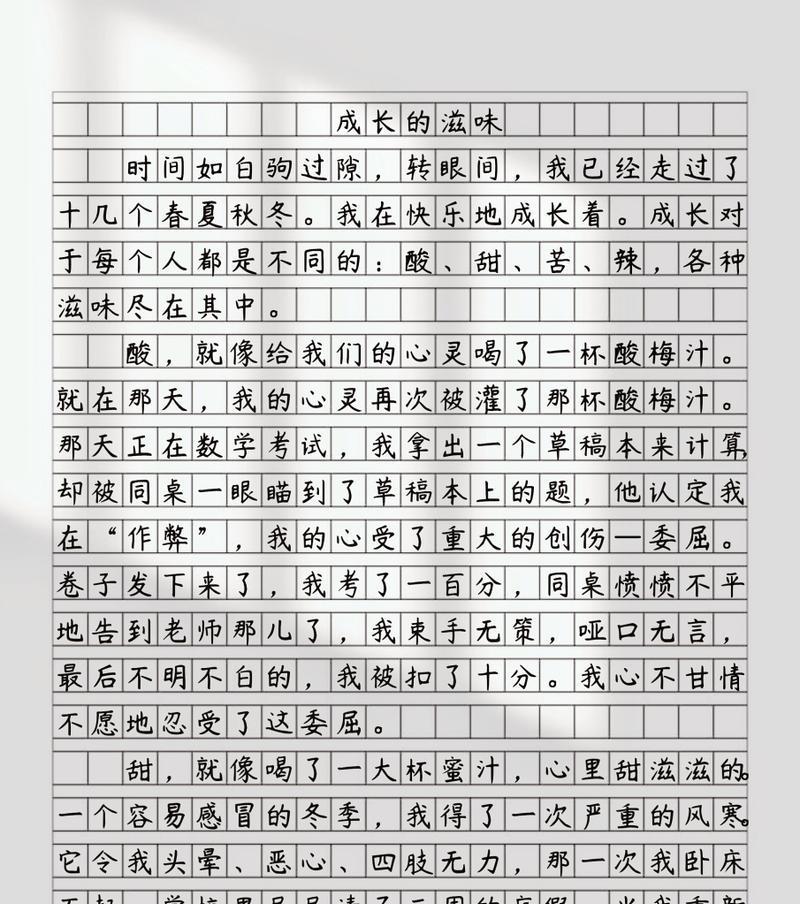 成长的滋味
时间如白驹过隙，转眼间，我已经走过了
十几个春夏秋冬。我在快乐地成长着。成长对
于每个人都是不同的：酸、甜、苦、辣，各种
滋味尽在其中。
酸，就像给我们的心灵喝了一杯酸梅汁。
就在那天，我的心灵再次被灌了那杯酸梅汁。
那天正在数学考试，我拿出一个草稿本来计算，
却被同桌一眼瞄到了草稿本上的题，他认定我
在“作弊”，我的心受了重大的创伤—委屈。
卷子发下来了，我考了一百分，同桌愤愤不平
地告到老师那儿了，我束手无策，哑口无言，
最后不明不白的，我被扣了十分。我心不甘情
不愿地忍受了这委屈。
甜，就像喝了一大杯蜜汁，心里甜滋滋的。
一个容易感冒的冬季，我得了一次严重的风寒。
它令我头晕、恶心、四肢无力，那一次我卧床